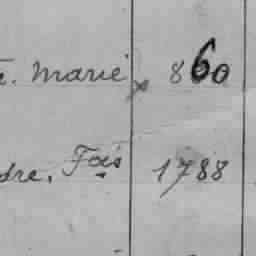 . Marie 860
dre. Fois 1788